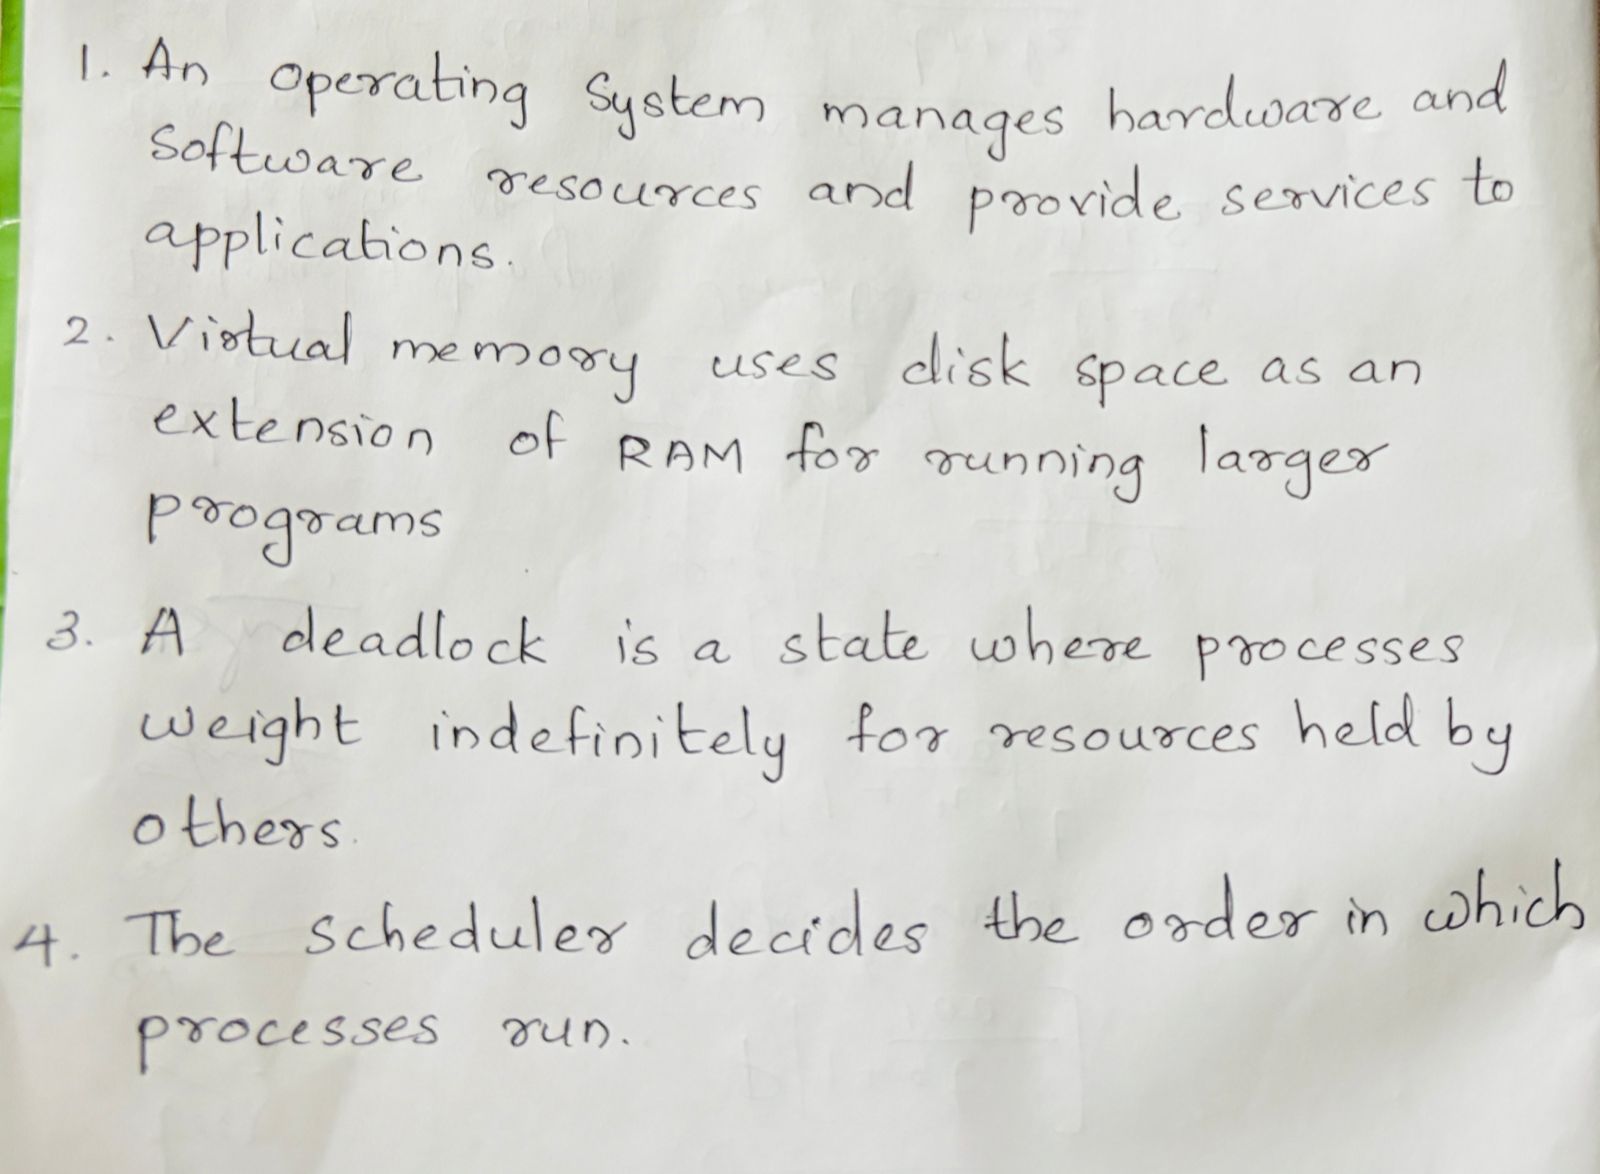 1. An operating System manages hardware and
Software resources and provide services to
applications.
2. Virtual memory uses disk space as an
extension of RAM for running larger
programs
3. A deadlock is a state where processes
weight indefinitely for resources held by
others.
4. The scheduler decides the order in which
processes run.